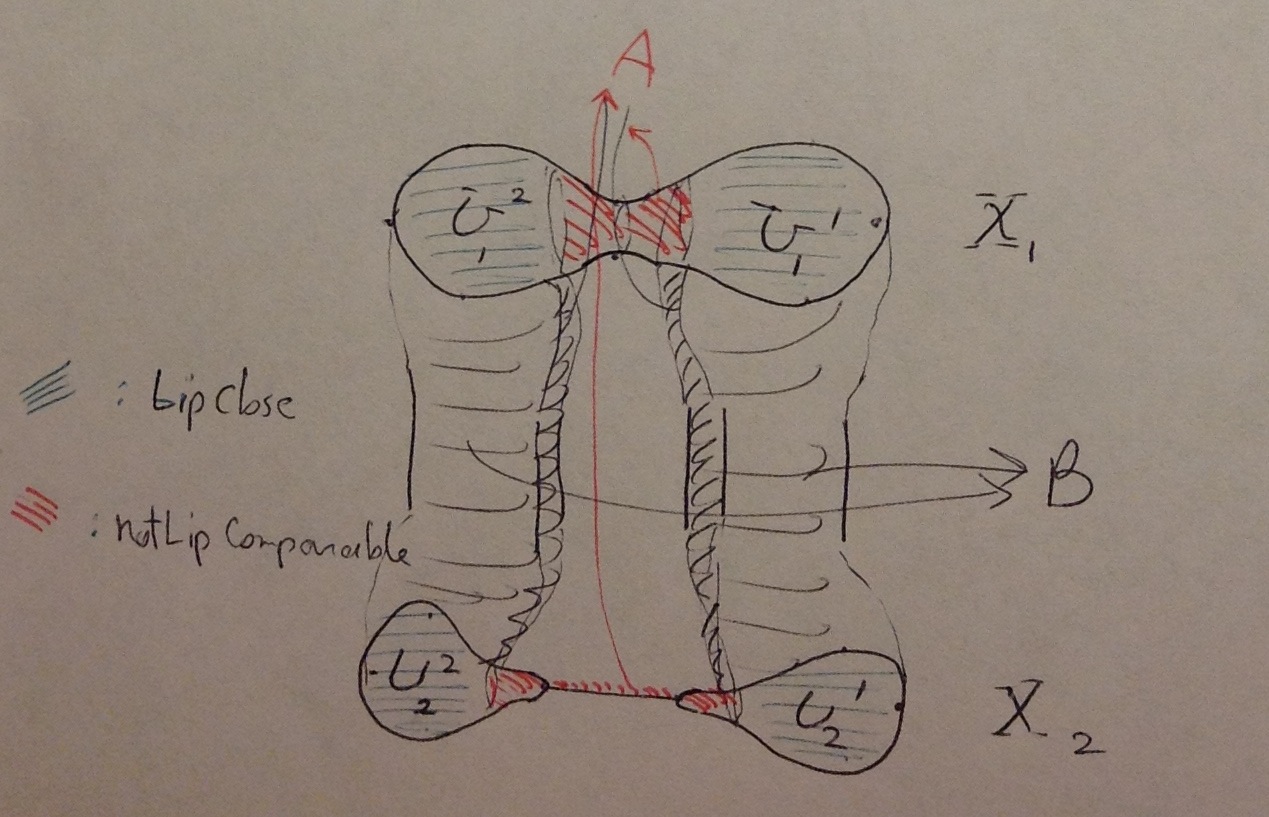 A
U₁² U₁¹ X₁
: Lip Close
B
: not Lip Comparable
U₂² U₂¹ X₂